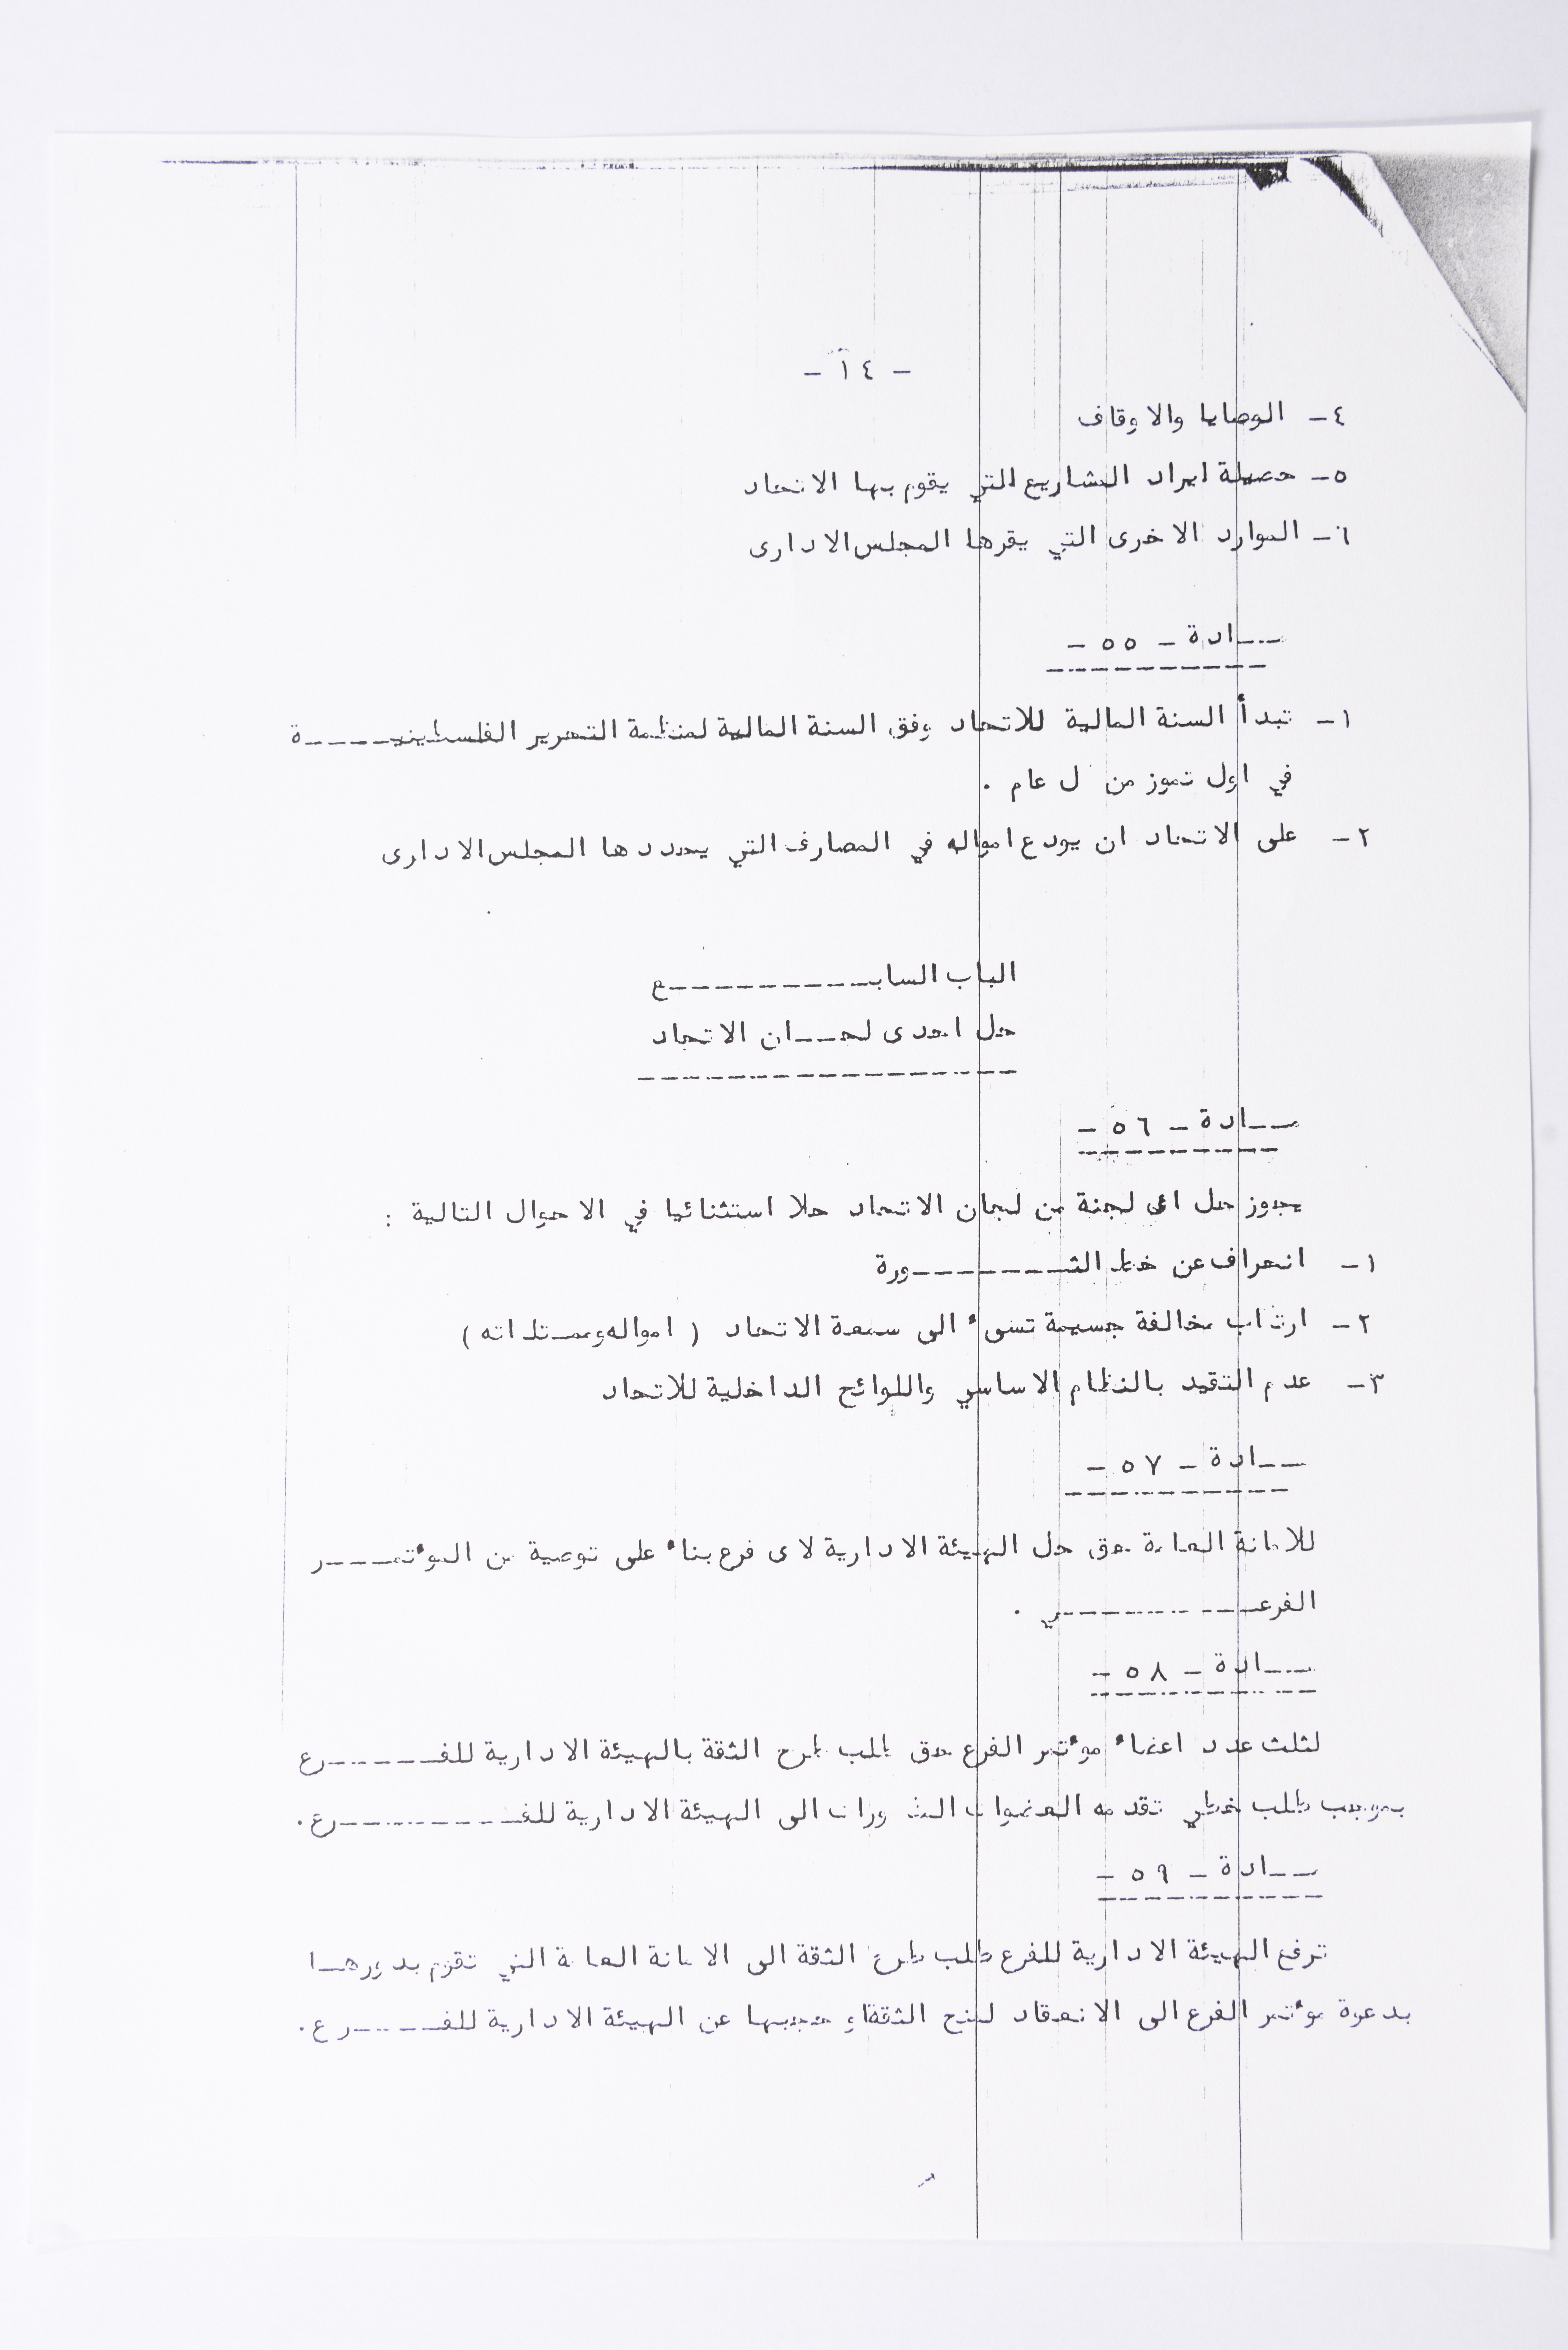 - ١٤ -
٤- الوصايا والاوقاف
٥- حصيلة ايراد المشاريع التي يقوم بها الاتحاد
٦- الموارد الاخرى التي يقرها المجلس الادارى
مــادة - ٥٥ -
١- تبدأ السنة المالية للاتحاد وفق السنة المالية لمنظمة التحرير الفلسطينيــــة
في اول تموز من ل عام .
٢- على الاتحاد ان يودع امواله في المصارف التي يحددها المجلس الادارى
الباب السابــــــــع
حل احدى لجــان الاتحاد
مــادة - ٥٦ -
يجوز حل اى لجنة من لجان الاتحاد حلا استثنائيا في الاحوال التالية :
١- انحراف عن خط الثــــــــورة
٢- ارتاب مخالفة جسيمة تسىء الى سمعة الاتحاد ( امواله وممتلاته )
٣- عدم التقيد بالنظام الاساسي واللوائح الداخلية للاتحاد
مــادة - ٥٧ -
للامانة العامة حق حل الهيئة الادارية لاى فرع بناء على توصية من المؤتمــــر
الفرعــــــــي .
مــادة - ٥٨ -
لثلث عدد اعضاء مؤتمر الفرع حق طلب طرح الثقة بالهيئة الادارية للفــــرع
بموجب طلب خطي تقدمه العضوات الى الهيئة الادارية للفــــــــرع.
مــادة - ٥٩ -
ترفع الهيئة الادارية للفرع طلب طرح الثقة الى الامانة العامة التي تقوم بدورهــا
بدعوة مؤتمر الفرع الى الانعقاد لمنح الثقة او حجبها عن الهيئة الادارية للفــــرع.